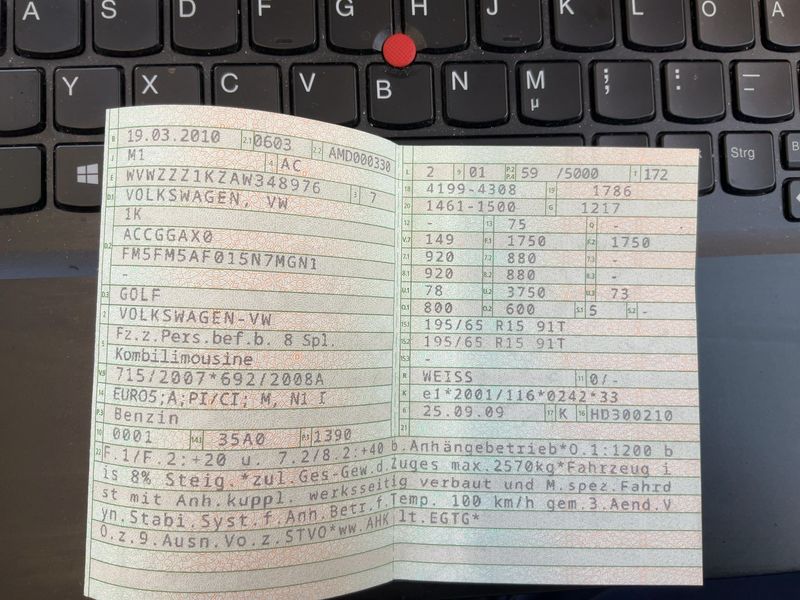 A S D F G H J K L O A
Y X C V B N M µ ; : _ –
Strg
B 19.03.2010 2.1 0603 2.2 AMD000330
J M1 4 AC
E WVWZZZ1KZAW348976 3 7
D.1 VOLKSWAGEN, VW
1K
D.2 ACCGGAX0
FM5FM5AF015N7MGN1
-
D.3 GOLF
2 VOLKSWAGEN-VW
5 Fz.z.Pers.bef.b. 8 Spl.
Kombilimousine
V.9 715/2007*692/2008A
14 EURO5;A;PI/CI; M, N1 I
P.3 Benzin
10 0001 14.1 35A0 P.1 1390
L 2 9 01 P.2 P.4 59 /5000 T 172
18 4199-4308 19 1786
20 1461-1500 G 1217
12 - 13 75 Q -
V.7 149 F.1 1750 F.2 1750
7.1 920 7.2 880 7.3 -
8.1 920 8.2 880 8.3 -
U.1 78 U.2 3750 U.3 73
O.1 800 O.2 600 S.1 5 S.2 -
15.1 195/65 R15 91T
15.2 195/65 R15 91T
15.3 -
R WEISS 11 0/-
K e1*2001/116*0242*33
6 25.09.09 17 K 16 HD300210
22 F.1/F.2:+20 u. 7.2/8.2:+40 b.Anhängebetrieb*O.1:1200 b
is 8% Steig.*zul.Ges-Gew.d.Zuges max.2570kg*Fahrzeug i
st mit Anh.kuppl. werksseitig verbaut und M.spez.Fahrd
yn.Stabi.Syst.f.Anh.Betr.f.Temp. 100 km/h gem.3.Aend.V
O.z.9.Ausn.Vo.z.STVO*ww.AHK lt.EGTG*